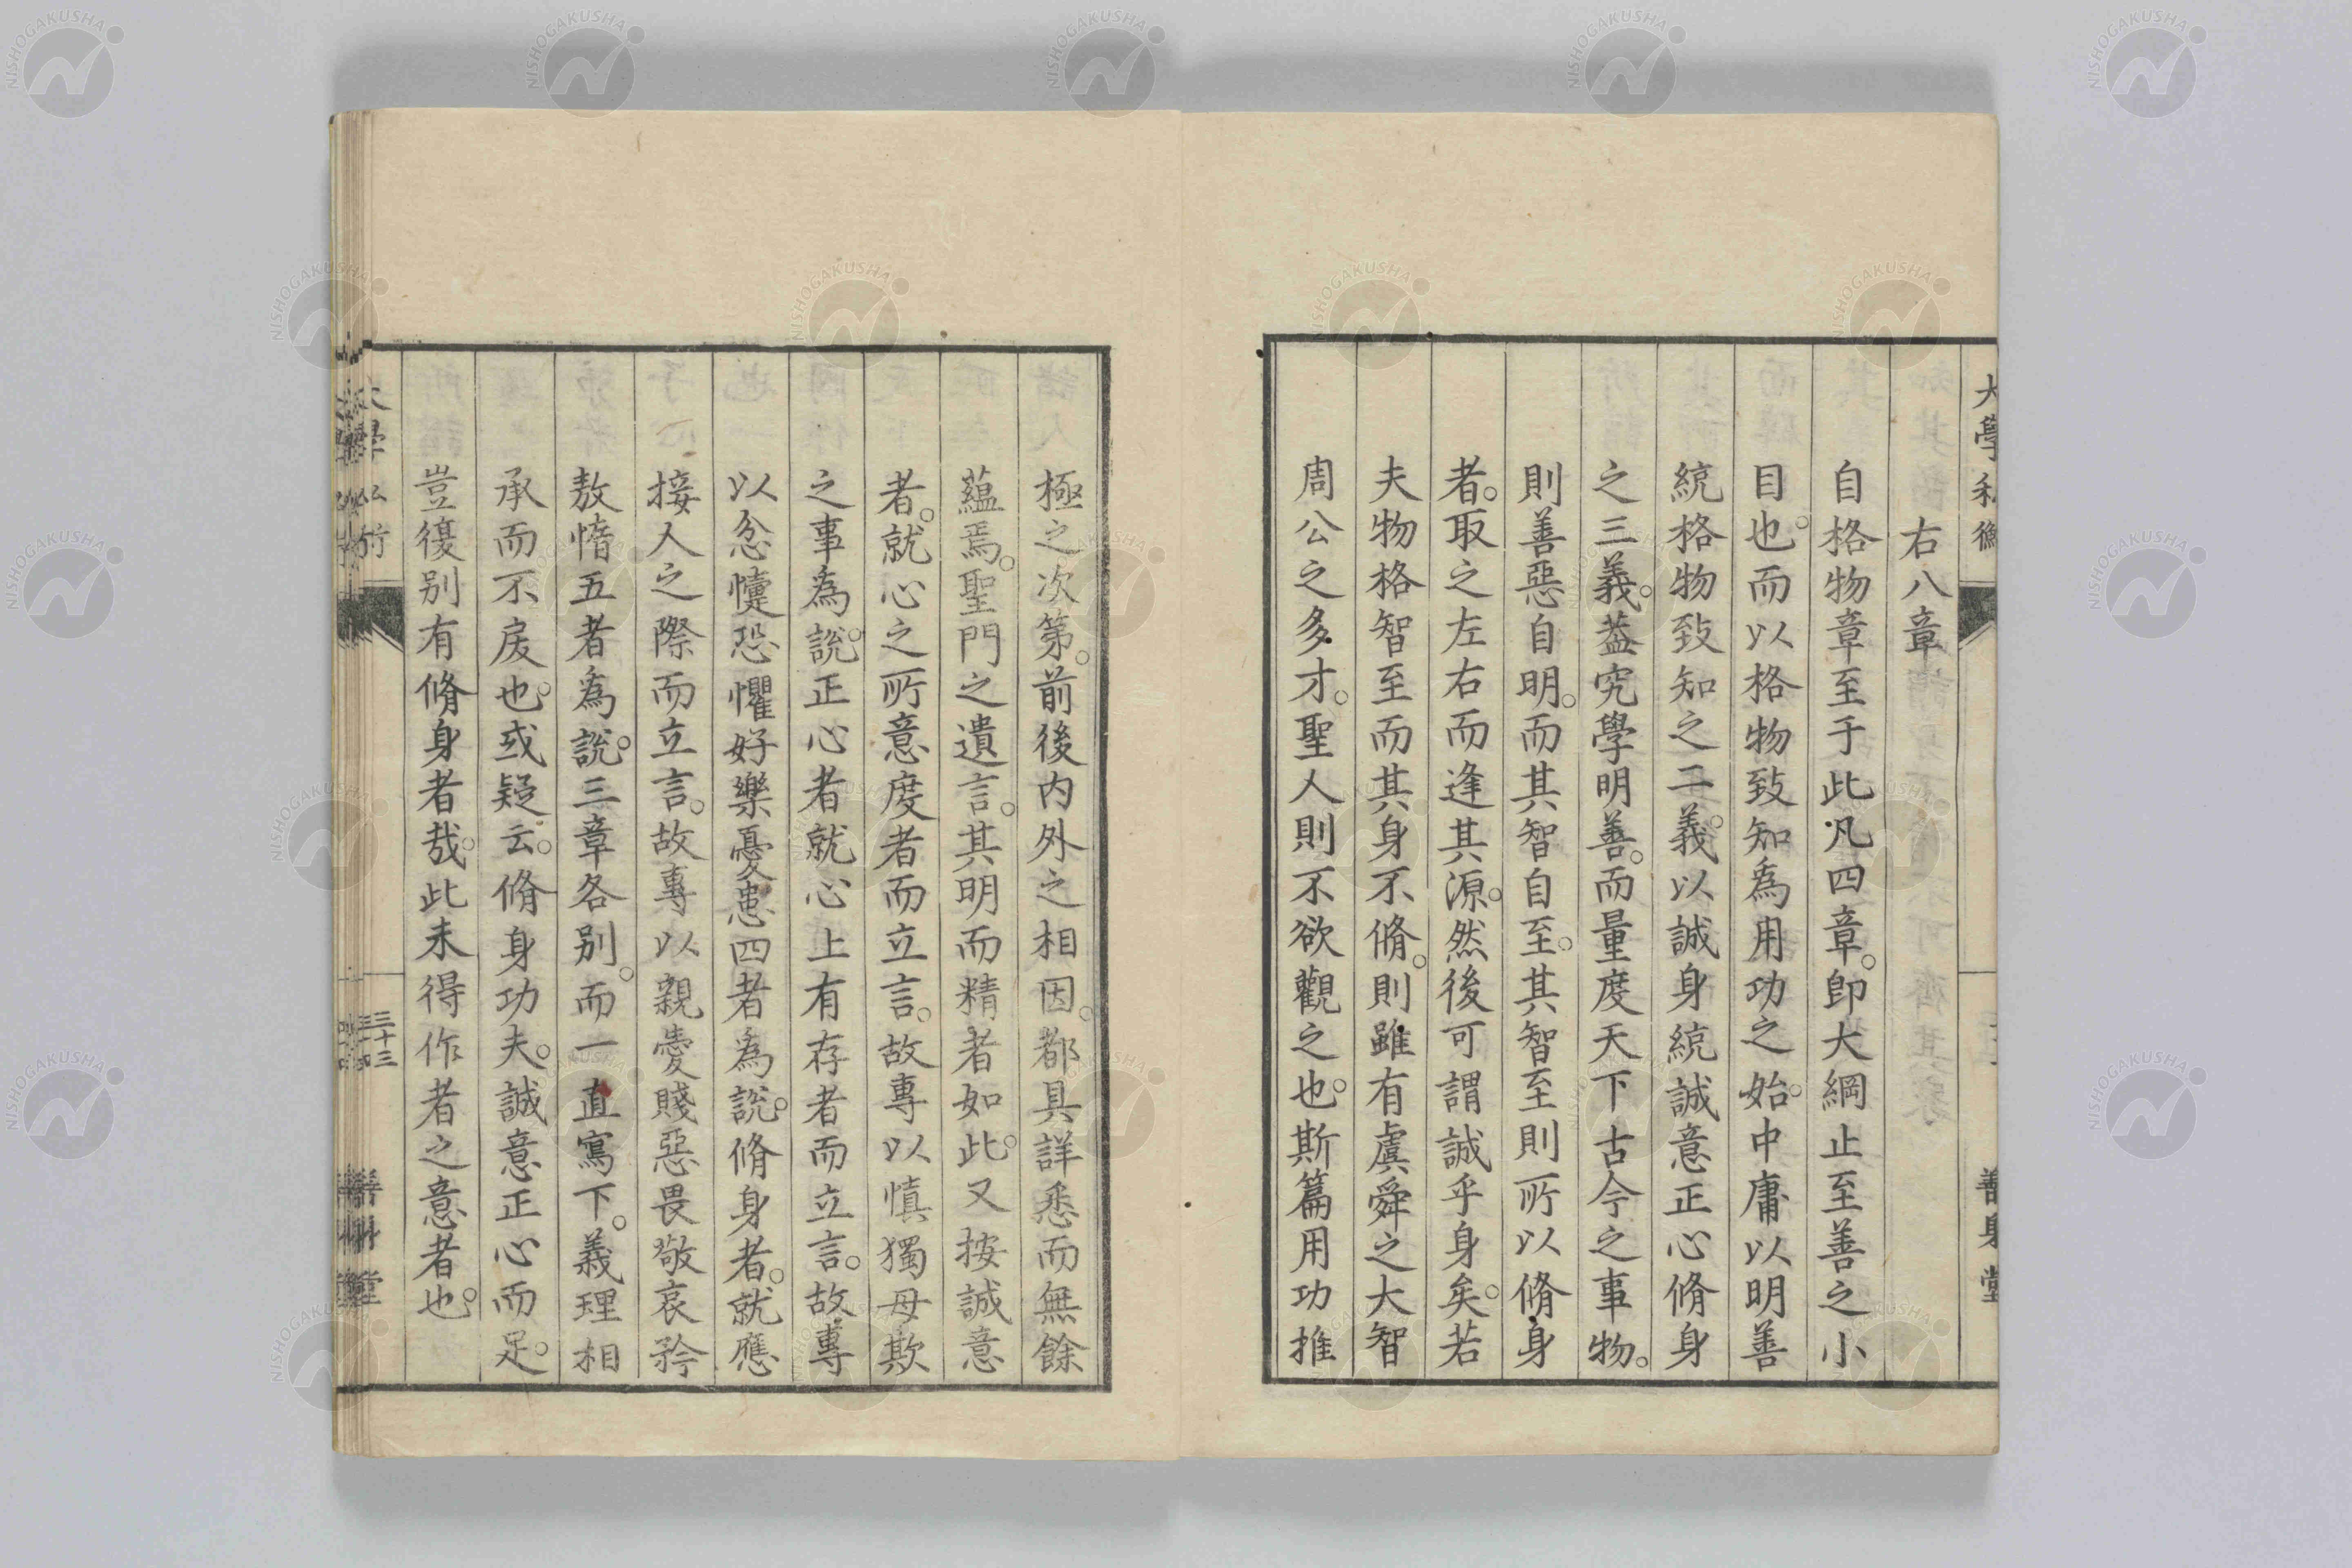 右八章
自格物章至于此凡四章。即大綱止至善之小
目也。而以格物致知為用功之始。中庸以明善
統格物致知之二義。以誠身統誠意正心脩身
之三義。蓋究學明善。而量度天下古今之事物。
則善惡自明。而其智自至。其智至則所以脩身
者。取之左右而逢其源。然後可謂誠乎身矣。若
夫物格智至而其身不脩。則雖有虞舜之大智
周公之多才。聖人則不欲觀之也。斯篇用功推
極之次第。前後内外之相因。都具詳悉而無餘
蘊焉。聖門之遺言。其明而精者如此。又按誠意
者。就心之所意度者而立言。故專以慎獨毋欺
之事為說。正心者就心上有存者而立言。故專
以忿懥恐懼好樂憂患四者為說。脩身者。就應
接人之際而立言。故專以親愛賤惡畏敬哀矜
敖惰五者為說。三章各別。而一直寫下。義理相
承而不戾也。或疑云。脩身功夫。誠意正心而足。
豈復別有脩身者哉。此未得作者之意者也。
大學私衡
三十三
善身堂